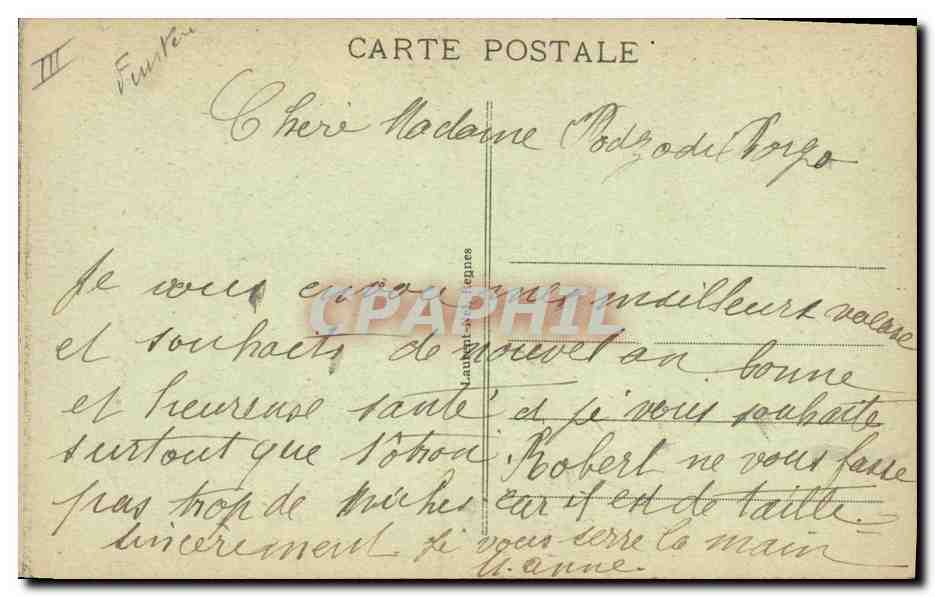 III
CARTE POSTALE
Chère Madame Podzodi Borgo
Je vous envoi mes meilleurs
et souhaits de nouvel an bonne
et heureuse santé et je vous souhaite
surtout que Robert ne vous fasse
pas trop de car il est de taille.
sincèrement je vous serre la main
Laurent-Nel, Rennes
CPAPHIL